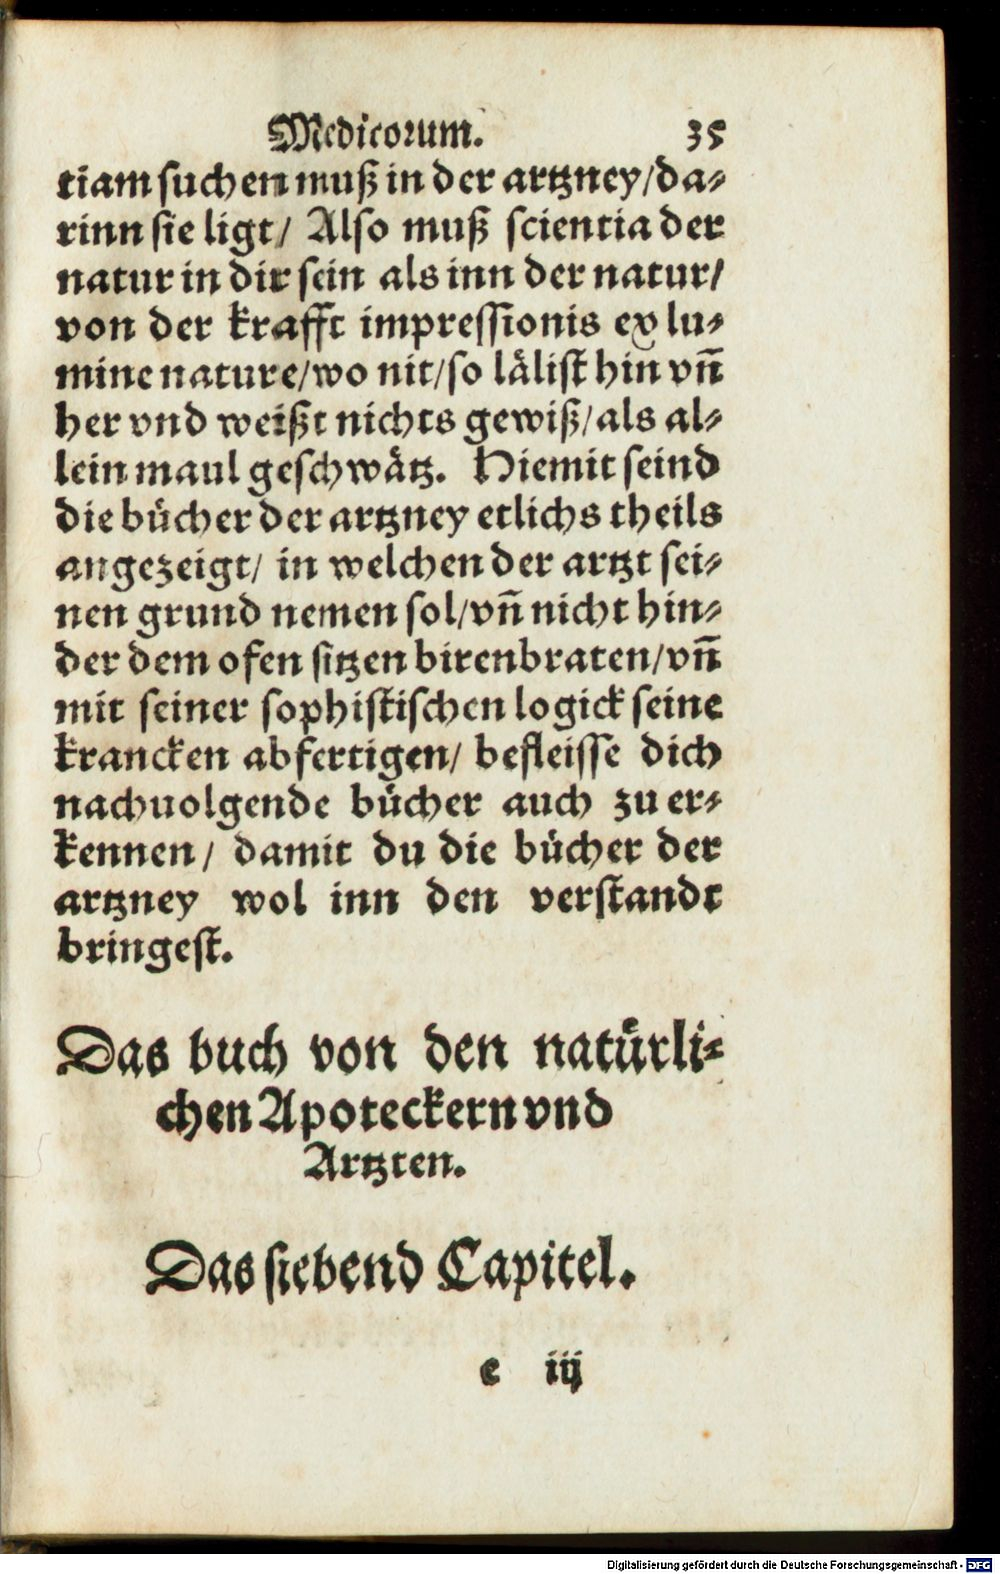 Medicorum. 35
tiam suchen muß in der artzney/da⸗
rinn sie ligt/ Also muß scientia der
natur in dir sein als inn der natur/
von der krafft impressionis ex lu⸗
mine nature/wo nit/so lälist hin vñ
her vnd weißt nichts gewiß/als al⸗
lein maul geschwätz. Hiemit seind
die bücher der artzney etlichs theils
angezeigt/ in welchen der artzt sei⸗
nen grund nemen sol/vñ nicht hin⸗
der dem ofen sitzen birenbraten/vñ
mit seiner sophistischen logick seine
krancken abfertigen/ befleisse dich
nachuolgende bücher auch zu er⸗
kennen/ damit du die bücher der
artzney wol inn den verstandt
bringest.
Das buch von den natürli⸗
chen Apoteckern vnd
Artzten.
Das siebend Capitel.
e iij
Digitalisierung gefördert durch die Deutsche Forschungsgemeinschaft - DFG